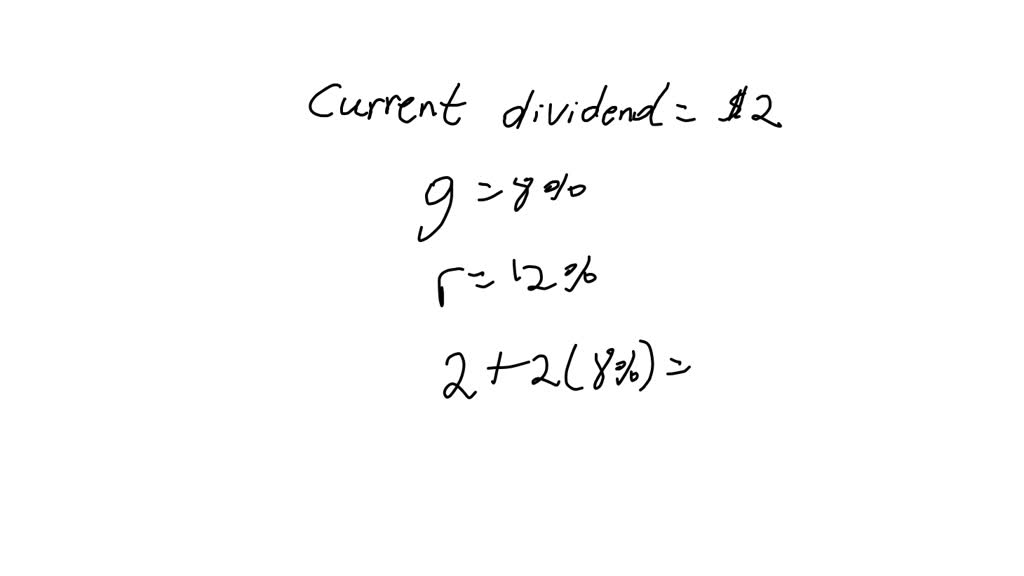 Current dividend = $2
g = 8%
r = 12%
2 + 2(8%) =